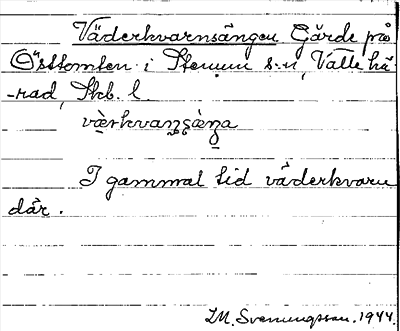 Väderkvarnsängen Gärde på
Östtomten i Stenum s:n, Valle hä-
-rad, Skb. l.
vä̀rkvanṣä̀ŋa
I gammal tid väderkvarn
där.
I.M. Svenungsson. 1944.